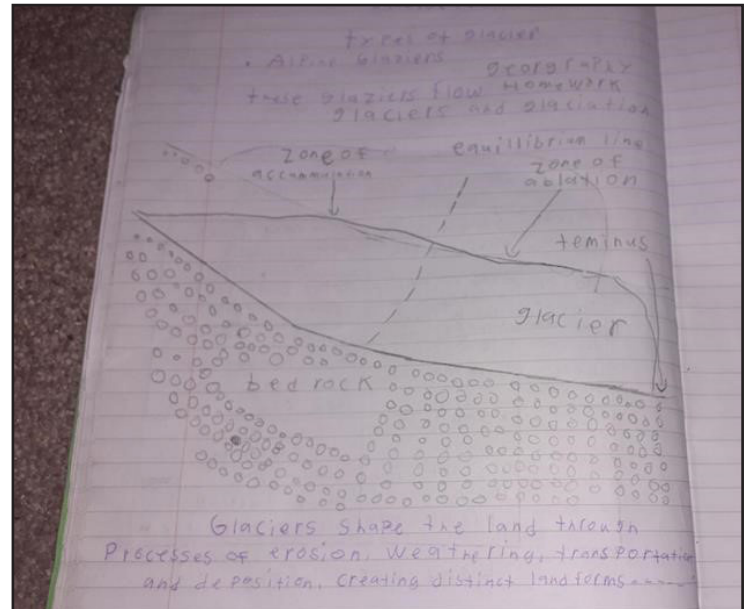 types of glacier
• Alpine Glaziers
geography
these glaziers flow Homework
glaciers and glaciation
zone of
accumulation
equillibrian line
zone of
ablation
teminus
glacier
bedrock
Glaciers shape the land through
Processes of erosion, weathering, transportation
and deposition, creating distinct landforms------